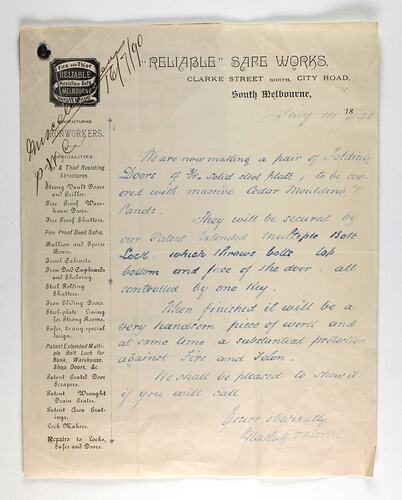 "RELIABLE" SAFE WORKS.
CLARKE STREET NORTH, CITY ROAD,
South Melbourne,
Fire and Thief
RELIABLE
Resisting Safe
MELBOURNE
16/7/90
July 14 1890
MANUFACTURING
IRONWORKERS.
SPECIALITIES:
Fire & Thief Resisting
Structures.
Strong Vault Doors
and Grilles.
Fire Proof Ware-
house Doors.
Fire Proof Shutters.
Fire Proof Deed Safes.
Bullion and Specie
Boxes.
Jewel Cabinets.
Iron Deed Cupboards
and Shelving.
Steel Folding
Shutters.
Iron Sliding Doors.
Steel-plate Lining
for Strong Rooms.
Safes, to any special
design.
Patent Extended Multi-
ple Bolt Lock for
Bank, Warehouse,
Shop Doors, &c.
Patent Grated Door
Scrapers.
Patent Wrought
Drain Grates.
Patent Area Grat-
ings.
Lock Makers.
Repairs to Locks,
Safes and Doors.
We are now making a pair of Folding
Doors of solid steel plate; to be cov
ered with massive Cedar Moulding &
Panels.
They will be secured by
our Patent Extended Multiple Bolt
Lock which throws bolts top
bottom and face of the door all
controlled by one Key.
When finished it will be a
very handsom piece of work and
at same time a substantial protection
against Fire and Felon.
We shall be pleased to show it
if you will call
Yours obediently